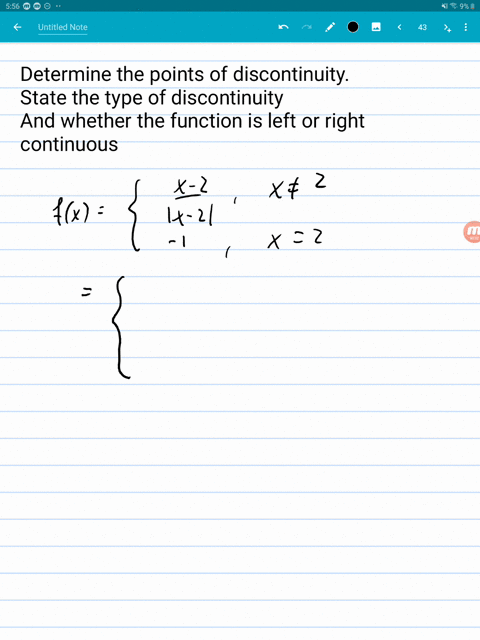 5:56 9%
Untitled Note 43
Determine the points of discontinuity.
State the type of discontinuity
And whether the function is left or right
continuous
f(x) = { x-2 / |x-2| , x ≠ 2
-1 , x = 2
= {